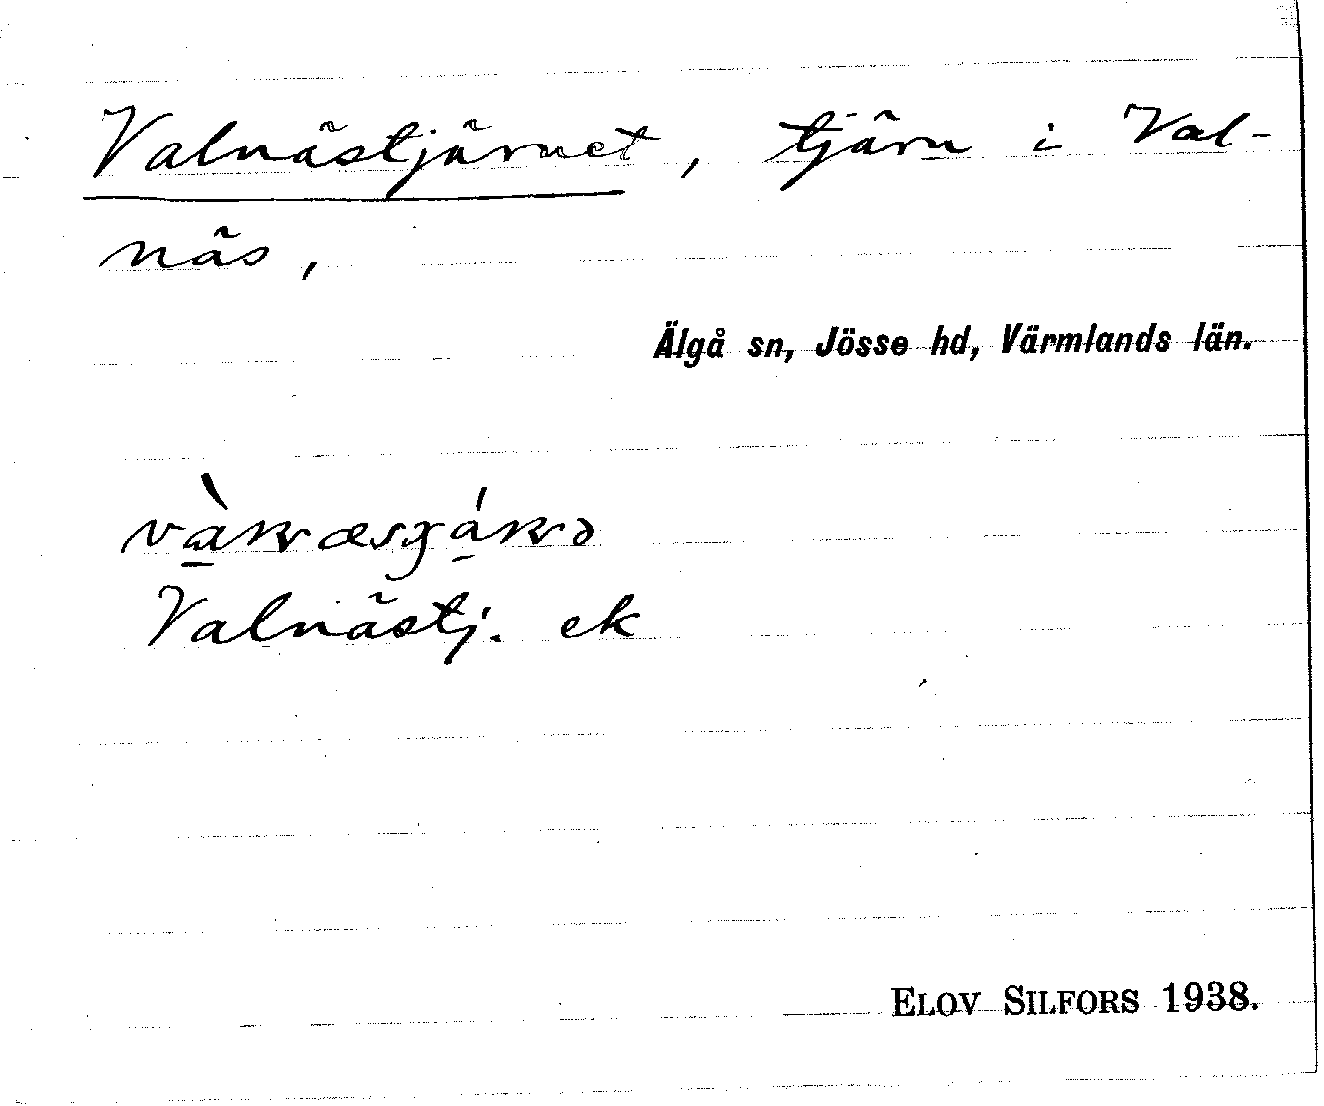 Valnästjärnet, tjärn i Val-
näs,
Älgå sn, Jösse hd, Värmlands län.
Valnästj. ek
ELOV SILFORS 1938.